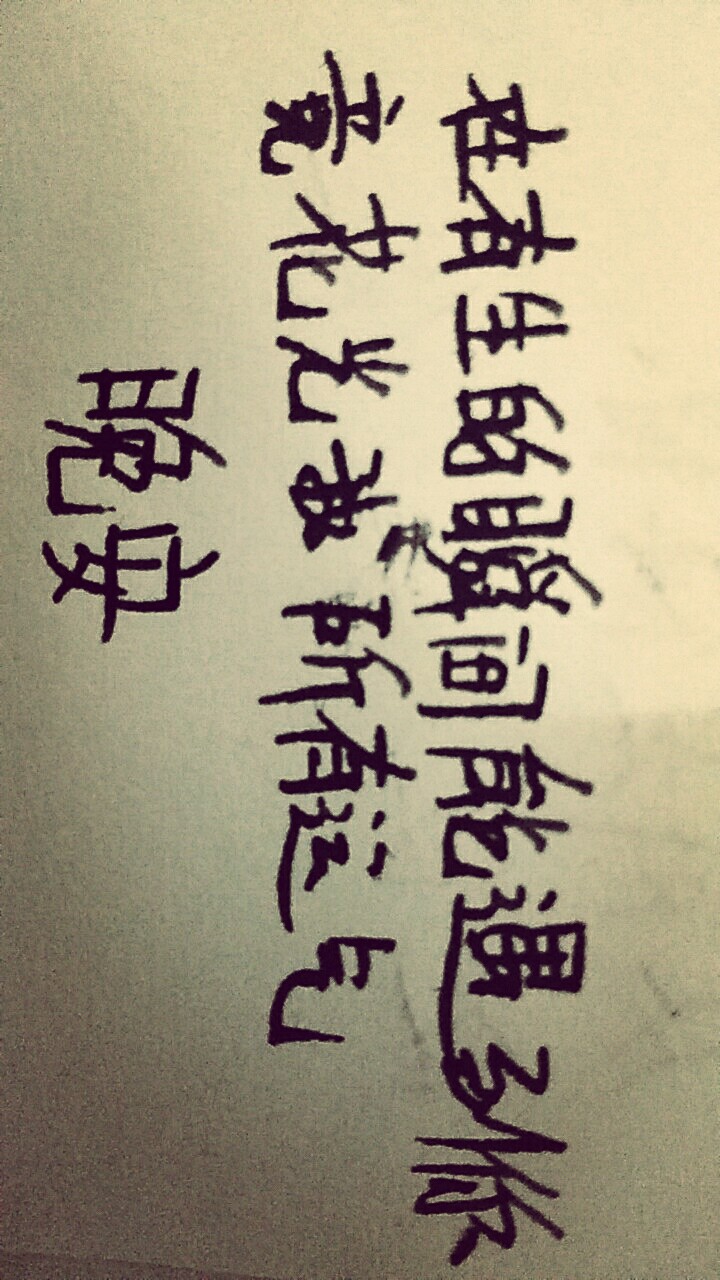 在有生的瞬间能遇到你
竟花光我所有运气
晚安